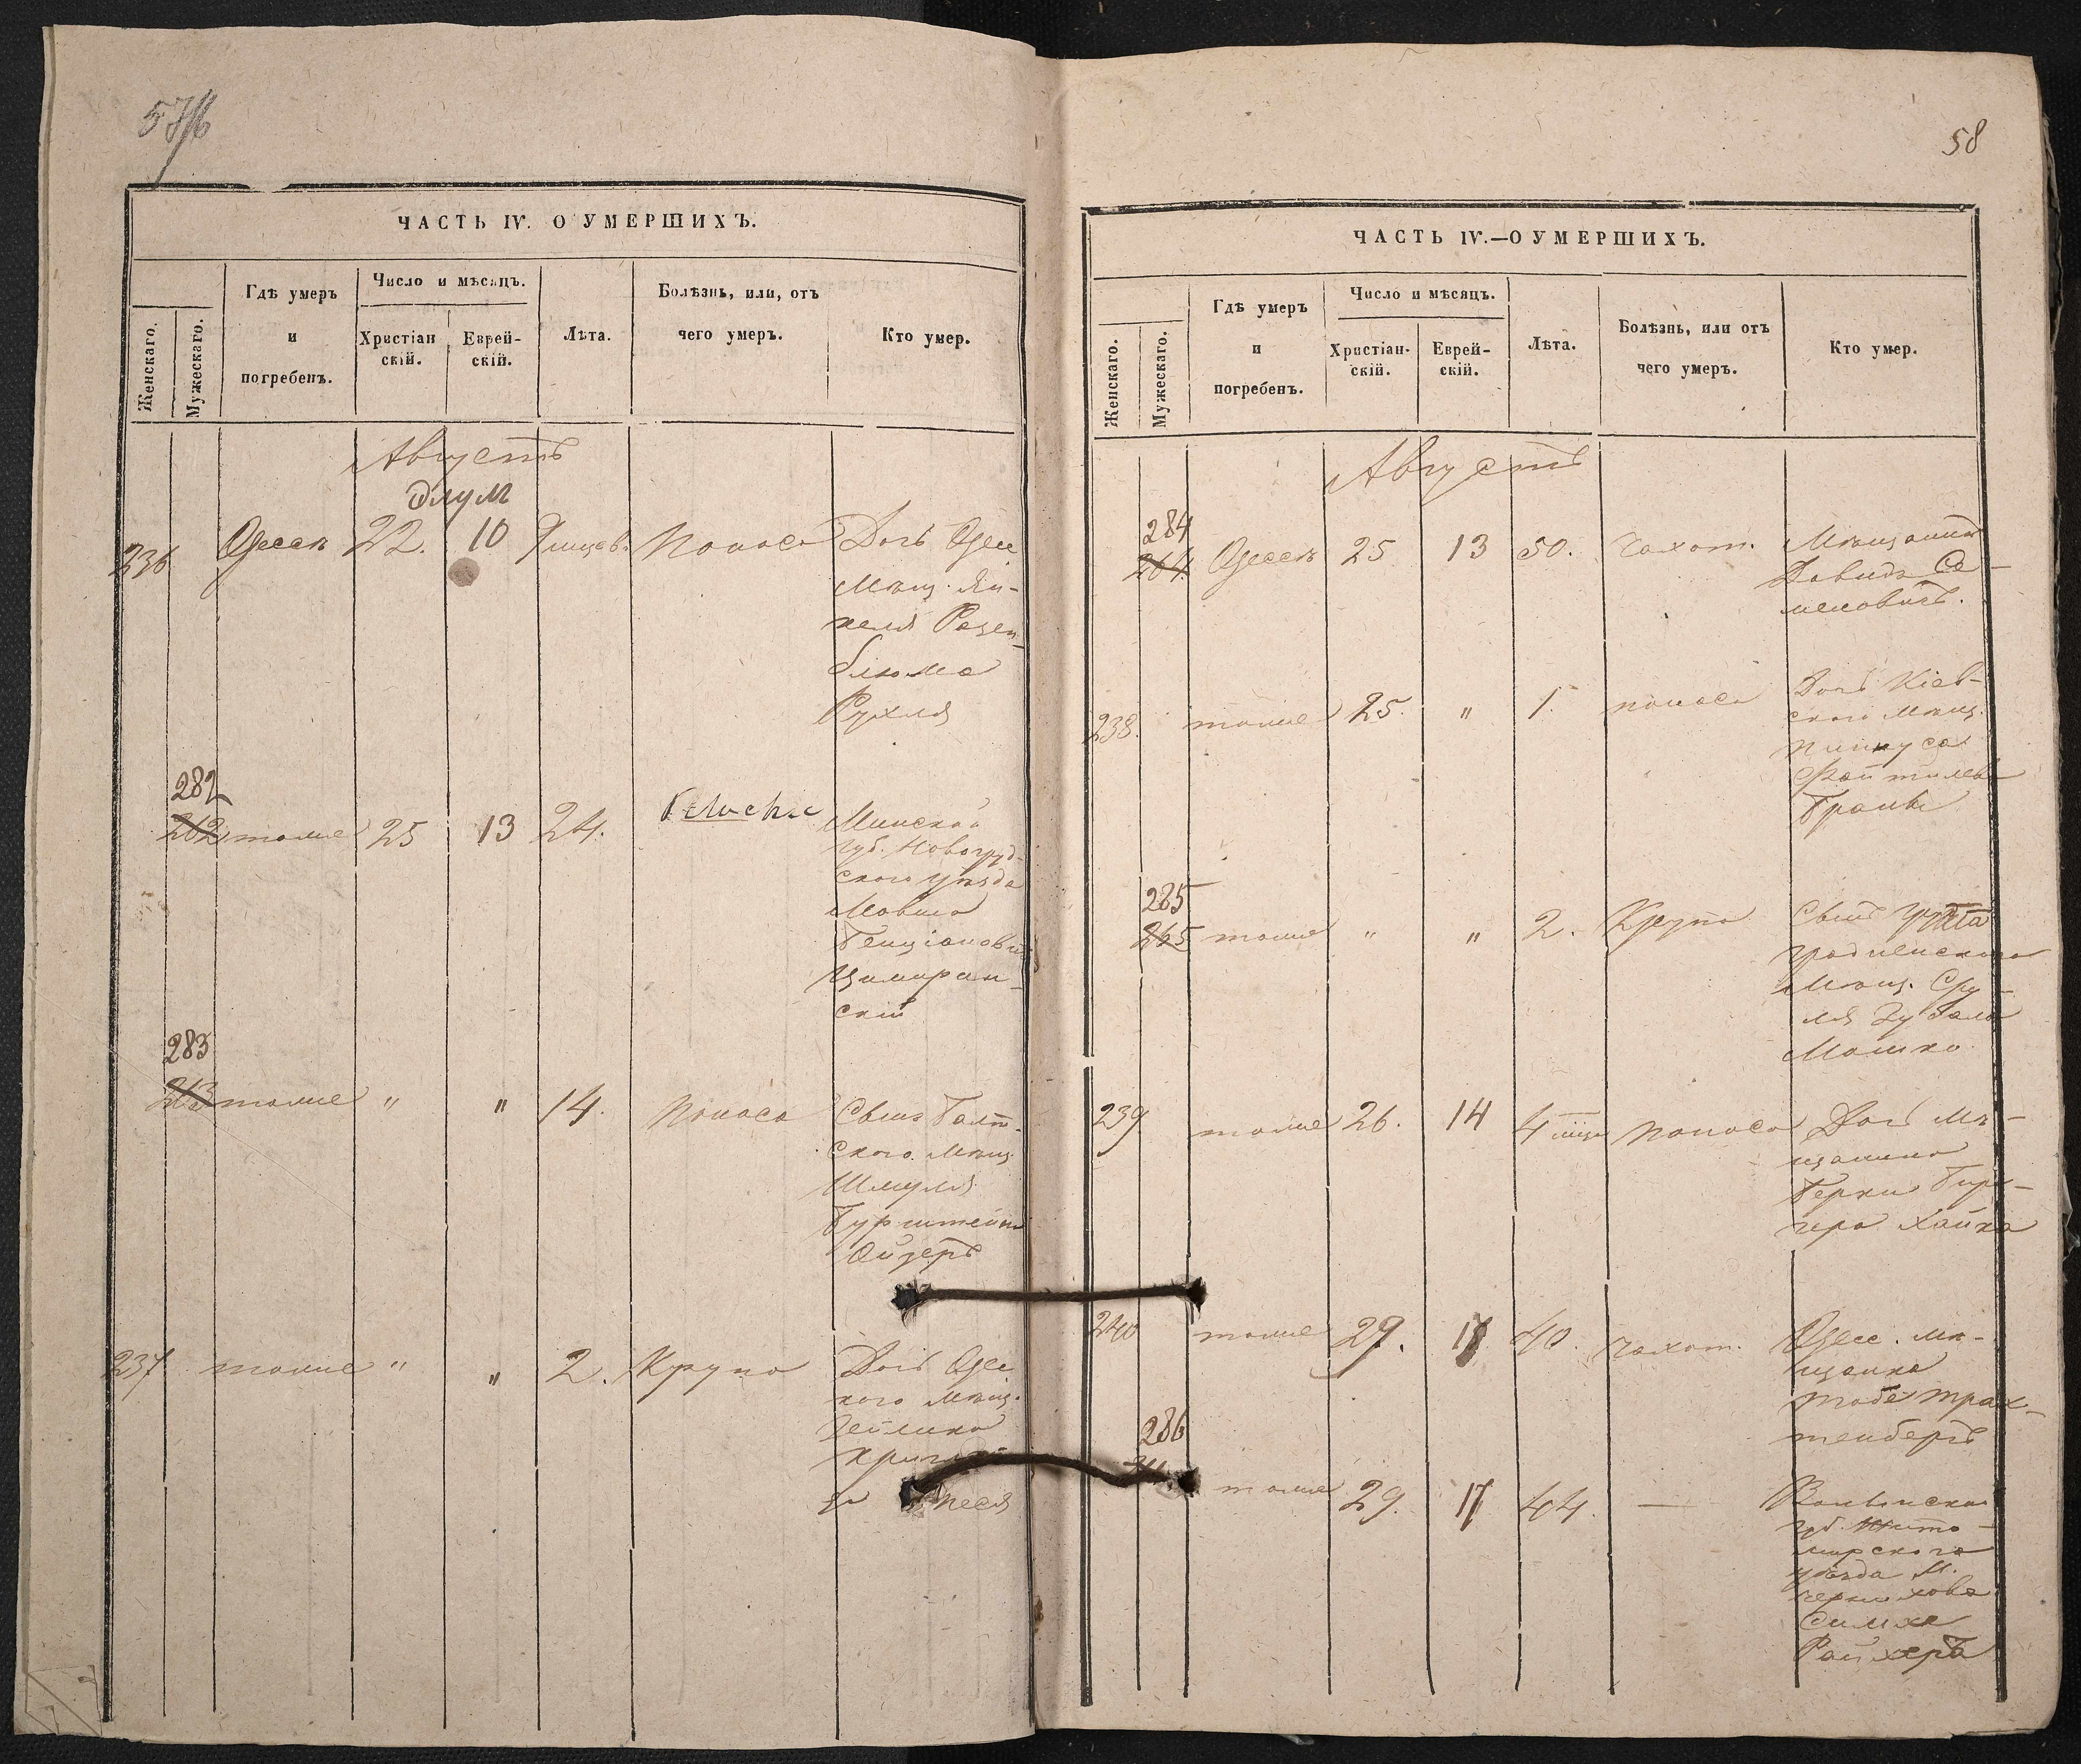 57/б
ЧАСТЬ IV. О УМЕРШИХЪ.
Женскаго.
Мужескаго.
Гдѣ умеръ
и
погребенъ.
Число и мѣсяцъ.
Христіан
скій.
Еврей-
скій.
Лѣта.
Болѣзнь, или, отъ
чего умеръ.
Кто умер.
Августъ
Элул
236 Одесса 22. 10 9 мѣсев. Поноса Дочь Одесс
Мѣщ. Ян-
келя Розен-
блюма
Рухля
282
262 тоже 25 13 24. Минской
губ. Новогруд-
скаго уѣзда
Мовша
Бенціановъ
Цимеран-
скій
283
263 тоже " " 14. Поноса Сынъ Балт-
ского. Мѣщ
Шмуля
Бурштейна
Ойзеръ
237 тоже " " 2. Крупа Дочь Одес
кого Мѣщ.
Зейлика
Песя
58
ЧАСТЬ IV.—О УМЕРШИХЪ.
Женскаго.
Мужескаго.
Гдѣ умеръ
и
погребенъ.
Число и мѣсяцъ.
Христіан-
скій.
Еврей-
скій.
Лѣта.
Болѣзнь, или отъ
чего умеръ.
Кто умер.
Августъ
284
264 Одесса 25 13 50. Чахот. Мѣщанинъ
Давидъ Се-
меновичъ.
238. тоже 25. " 1. поноса Дочь Кіев-
ского Мѣщ.
Пинкуса
Файтилева
Брана
285
265 тоже " " 2. Крупа Сынъ
гродненскаго
Мѣщ. Сру-
ля Зубала
Мошко
239 тоже 26. 14 4 мѣся Поноса Дочь Мѣ-
щанина
Берки Бир-
гера Хайка
240 тоже 29. 17 40. Чахот. Одесс. мѣ-
щанка
Тобе Трах-
тенбергъ
286
тоже 29. 17 44. — Волынской
губ. Жито-
мирскаго
уѣзда М.
Чернихова
Симха
Райхеръ